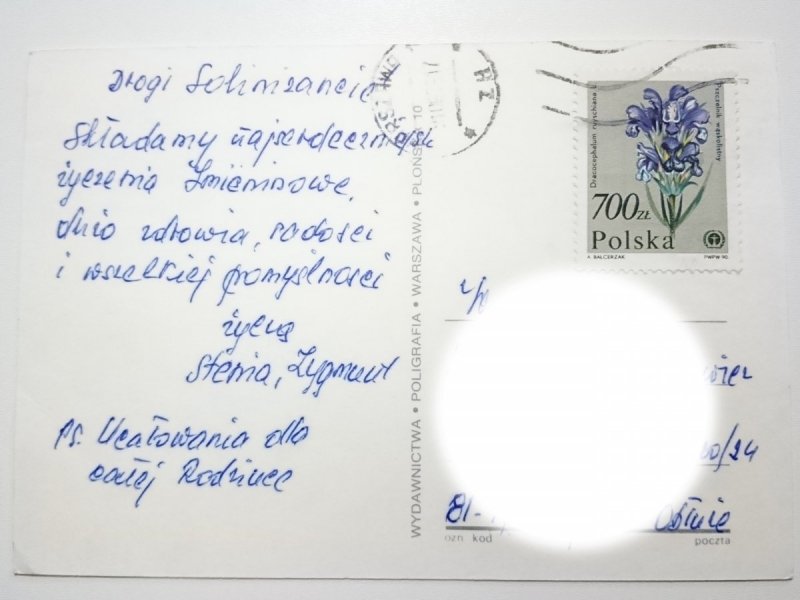 Drogi Solinizancie
Składamy najserdeczniejsze
życzenia Imieninowe,
dużo zdrowia, radości
i wszelkiej pomyślności
życzą
Stenia, Zygmunt
Ps. Ucałowania dla
całej Rodzinec
WYDAWNICTWA • POLIGRAFIA • WARSZAWA • PŁOŃSK
Dracocephalum ruyschiana L.
Pszczelnik wąskolistny
700 ZŁ
Polska
A. BALCERZAK PWPW 90.
/24
81-
ozn kod poczta